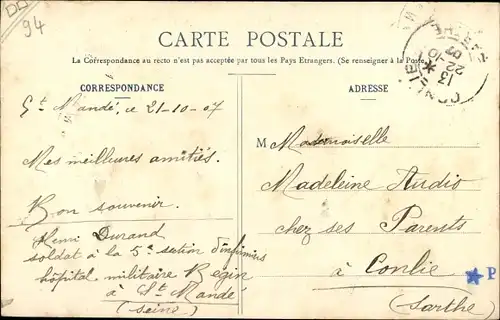 94
CARTE POSTALE
La Correspondance au recto n'est pas acceptée par tous les Pays Etrangers. (Se renseigner à la Poste
CORRESPONDANCE
ADRESSE
CONLIE
13
22-10
07
SARTHE
St Mandé, le 21-10-07
Mes meilleures amitiés.
Bon souvenir.
Henri Durand
soldat à la 5e section d'infirmiers
hôpital militaire Bégin
à St Mandé
(Seine)
M Mademoiselle
Madeleine Audio
chez ses Parents
à Conlie
(Sarthe)
P